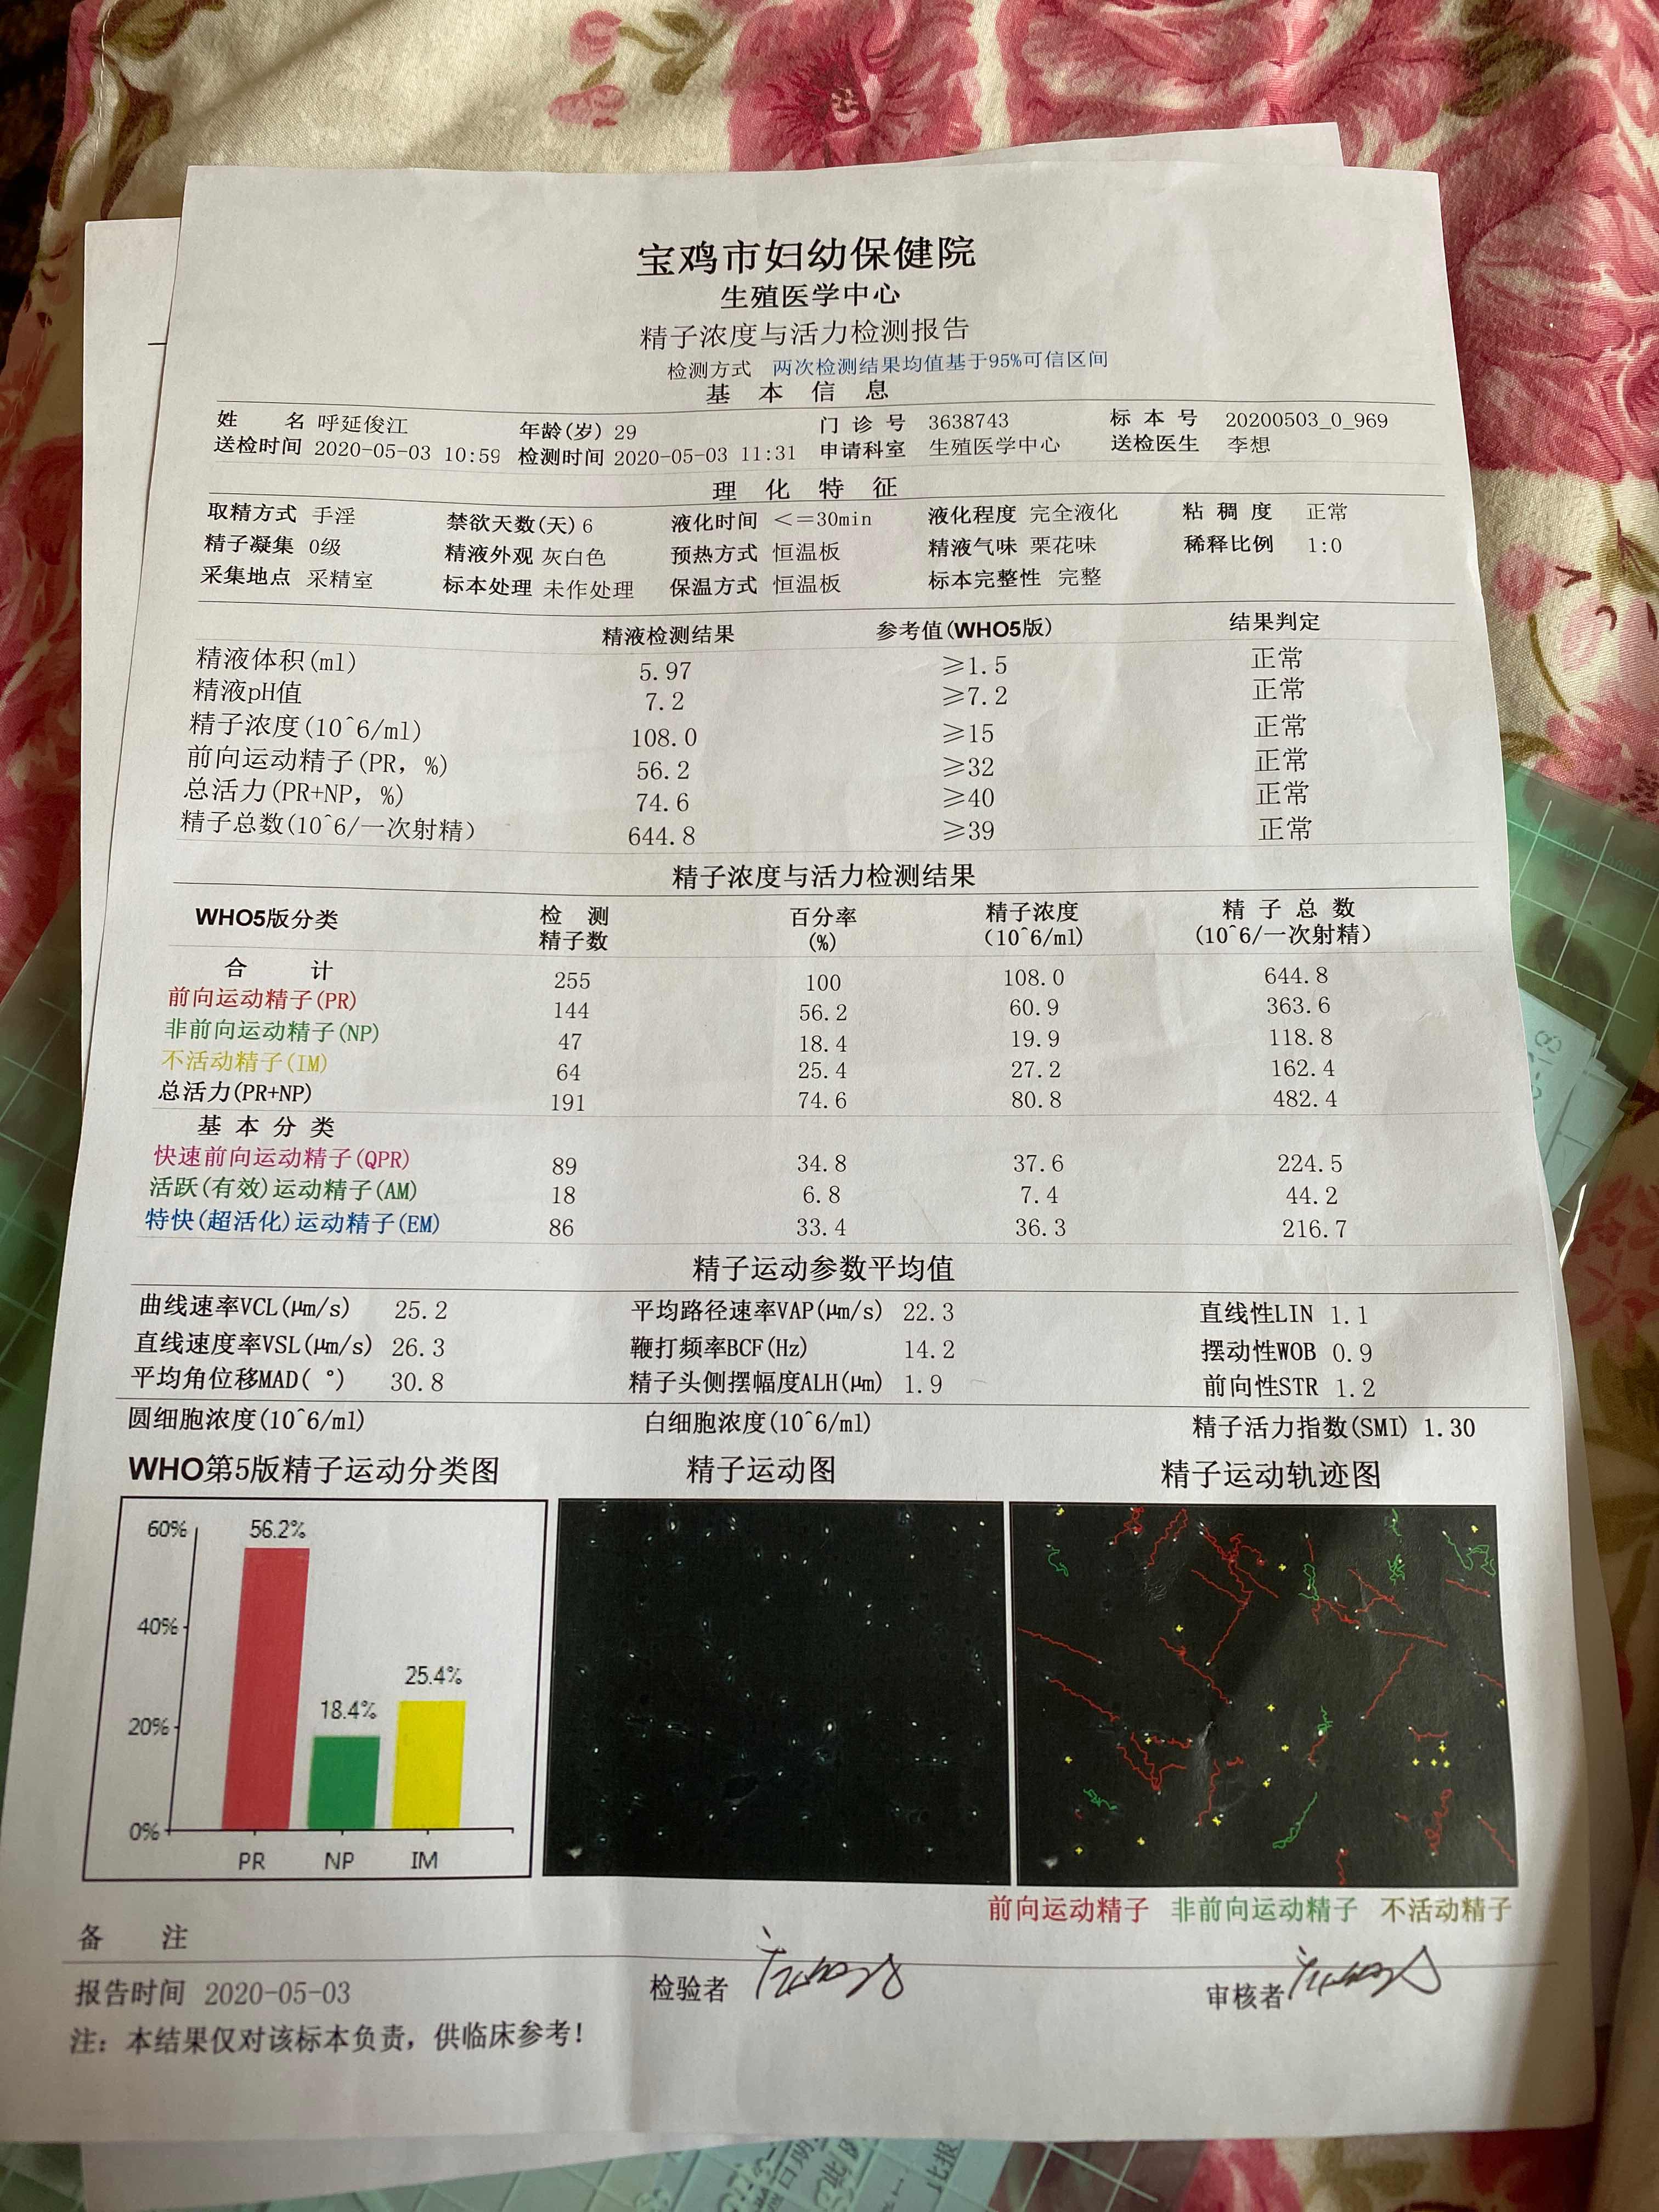 宝鸡市妇幼保健院
生殖医学中心
精子浓度与活力检测报告
检测方式 两次检测结果均值基于95%可信区间
基 本 信 息
姓 名 呼延俊江 年龄(岁) 29 门 诊 号 3638743 标 本 号 20200503_0_969
送检时间 2020-05-03 10:59 检测时间 2020-05-03 11:31 申请科室 生殖医学中心 送检医生 李想
理 化 特 征
取精方式 手淫 禁欲天数(天) 6 液化时间 <=30min 液化程度 完全液化 粘 稠 度 正常
精子凝集 0级 精液外观 灰白色 预热方式 恒温板 精液气味 栗花味 稀释比例 1:0
采集地点 采精室 标本处理 未作处理 保温方式 恒温板 标本完整性 完整
精液检测结果 参考值(WHO5版) 结果判定
精液体积(ml) 5.97 ≥1.5 正常
精液pH值 7.2 ≥7.2 正常
精子浓度(10^6/ml) 108.0 ≥15 正常
前向运动精子(PR, %) 56.2 ≥32 正常
总活力(PR+NP, %) 74.6 ≥40 正常
精子总数(10^6/一次射精) 644.8 ≥39 正常
精子浓度与活力检测结果
WHO5版分类 检 测 精子数 百分率 (%) 精子浓度 (10^6/ml) 精 子 总 数 (10^6/一次射精)
合 计 255 100 108.0 644.8
前向运动精子(PR) 144 56.2 60.9 363.6
非前向运动精子(NP) 47 18.4 19.9 118.8
不活动精子(IM) 64 25.4 27.2 162.4
总活力(PR+NP) 191 74.6 80.8 482.4
基 本 分 类
快速前向运动精子(QPR) 89 34.8 37.6 224.5
活跃(有效)运动精子(AM) 18 6.8 7.4 44.2
特快(超活化)运动精子(EM) 86 33.4 36.3 216.7
精子运动参数平均值
曲线速率VCL(μm/s) 25.2 平均路径速率VAP(μm/s) 22.3 直线性LIN 1.1
直线速度率VSL(μm/s) 26.3 鞭打频率BCF(Hz) 14.2 摆动性WOB 0.9
平均角位移MAD( °) 30.8 精子头侧摆幅度ALH(μm) 1.9 前向性STR 1.2
圆细胞浓度(10^6/ml) 白细胞浓度(10^6/ml) 精子活力指数(SMI) 1.30
WHO第5版精子运动分类图 精子运动图 精子运动轨迹图
60% 56.2%
40%
25.4%
20% 18.4%
0%
PR NP IM
前向运动精子 非前向运动精子 不活动精子
备 注
报告时间 2020-05-03 检验者 审核者
注: 本结果仅对该标本负责, 供临床参考!